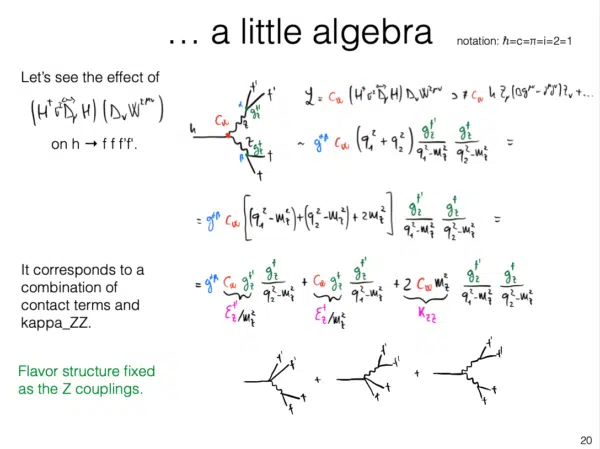 … a little algebra
notation: ℏ=c=π=i=2=1
Let's see the effect of
(H† σᵃ D_μ H) (D_ν W^{a μν})
on h → f f f'f'.
ℒ = C_W (H† σᵃ D_μ H) D_ν W^{a μν} ⊃ C_W h Z_μ (□g^{μν} - ∂^μ∂^ν) Z_ν + ...
h
C_W
α
β
Z
g_Z^{f'}
g_Z^f
f'
f'
f
f
~ g^{αβ} C_W (q₁² + q₂²) g_Z^{f'}/(q₁²-m_Z²) g_Z^f/(q₂²-m_Z²) =
= g^{αβ} C_W [(q₁²-m_Z²)+(q₂²-m_Z²)+2m_Z²] g_Z^{f'}/(q₁²-m_Z²) g_Z^f/(q₂²-m_Z²) =
It corresponds to a
combination of
contact terms and
kappa_ZZ.
= g^{αβ} C_W g_Z^{f'} g_Z^f/(q₂²-m_Z²) + C_W g_Z^f g_Z^{f'}/(q₁²-m_Z²) + 2 C_W m_Z² g_Z^{f'}/(q₁²-m_Z²) g_Z^f/(q₂²-m_Z²)
ε_Z^{f'}/m_Z²
ε_Z^f/m_Z²
κ_ZZ
Flavor structure fixed
as the Z couplings.
f' f' f f + f' f' f f + f' f' f f
20